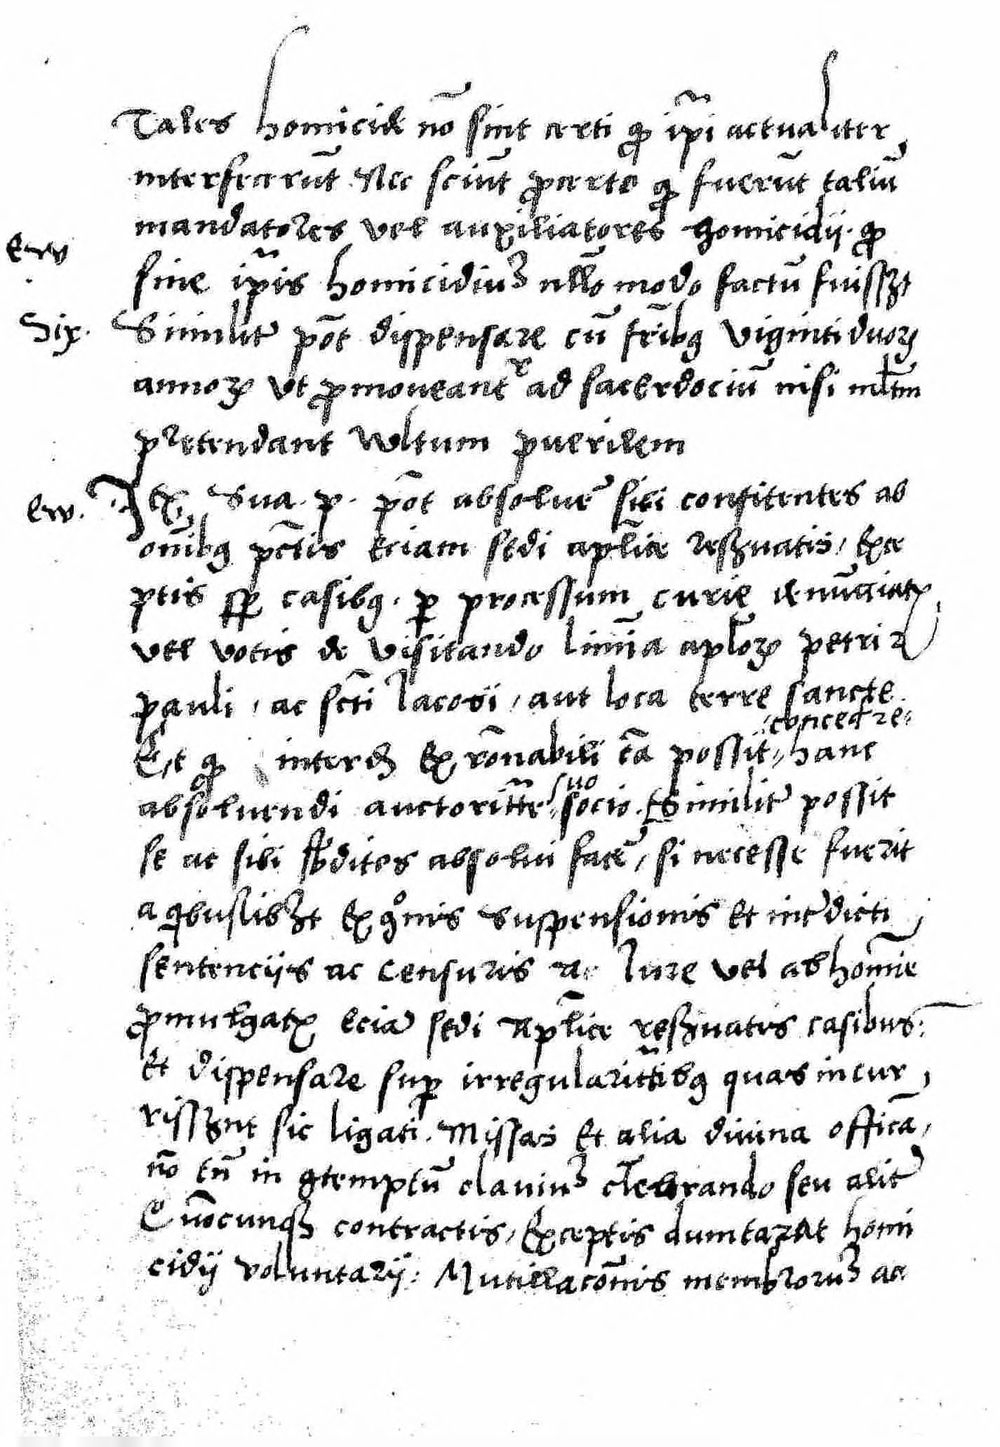 Tales homicide nō sint certi qȝ ip̄i actualiter
interfecerūt Nec sciūt pro certo qȝ fuerūt taliū
mandatores vel auxiliatores homicidij. qȝ
Euv
sine ip̄is homicidiuȝ nllō modo factū fuissȝt
Six.
Similiter pōt dispensare cū fr̄ibꝰ viginti duoꝝ
annoꝝ vt ꝓmoveantr ad sacerdociū nisi mltm̄
pretendant wltum puerilem
Itē Sua. p. pōt absolvē sibi confitentes ab
oībꝰ pctīs eciam sedi aplīce resȝvatis, exce
ptis casibꝰ. ꝑ processum curie denūciatꝭ
vel votis de visitando limīa aploꝝ petri
pauli, ac sctī Iacobi, aut loca terre sancte
concedere
Et qȝ interdȝ ex rōnabili cā possit hanc
suo
absoluendi auctoritāte socio. Et similiter possit
se ac sibi sbditos absolui facē, si necesse fuerit
a qbuslibȝt exꝯnis suspensionis et interdicti
sentenciis ac censuris a Iure vel ab homīe
ꝓmulgatꝭ eciā sedi aplīce resȝvatis casibus:
Et dispensare suꝑ irregularitātibꝰ quas incur
rissȝnt sic ligati. Missas et alia divina officīa,
nō tn̄ in ꝯtemptū clavium celebrando seu aliter
Quōcunqȝ contractis, Exceptis dumtaxat homi
cidij voluntarij: Mutilacōnis membroruȝ ac